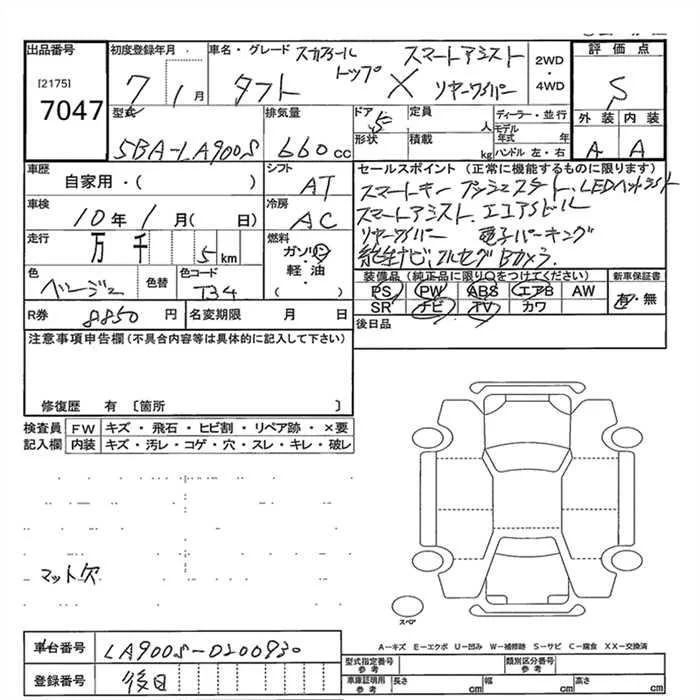 出品番号
[2175]
7047
初度登録年月
7 1月
車名・グレード スカイフィール トップ スマートアシスト
タフト X リヤーワイパー
2WD
・
4WD
評価点
S
外装 内装
A A
型式
5BA-LA900S
排気量
660cc
ドア
5
定員
人
形状
積載
kg
ディーラー・並行
モデル
年式 年
ハンドル 左・右
車歴
自家用・( )
シフト
AT
車検
10年1月( 日)
冷房
AC
走行
万 千 5km
燃料
ガソリン
軽・油
( )
色
ベージュ
色替
色コード
T34
R券 8850円
名変期限 月 日
セールスポイント (正常に機能するものに限ります)
スマートキー プッシュスタート、LEDヘッドライト
スマートアシスト、エコアイドル
リヤーワイパー 電子パーキング
純正ナビ、フルセグ Bカメラ
装備品(純正品に限り○をつけてください)
PS PW ABS エアB AW
SR ナビ TV カワ
新車保証書
有・無
後日品
注意事項申告欄(不具合内容等は具体的に記入して下さい)
修復歴 有〔箇所 〕
検査員 FW キズ・飛石・ヒビ割・リペア跡・×要
記入欄 内装 キズ・汚レ・コゲ・穴・スレ・キレ・破レ
マット欠
スペア
A-キズ E-エクボ U-凹み W-補修跡 S-サビ C-腐食 XX-交換済
車台番号 LA900S-0200930
登録番号 後日
型式指定番号
参考
類別区分番号
参考
車庫証明用
参考
長さ cm 幅 cm 高さ cm